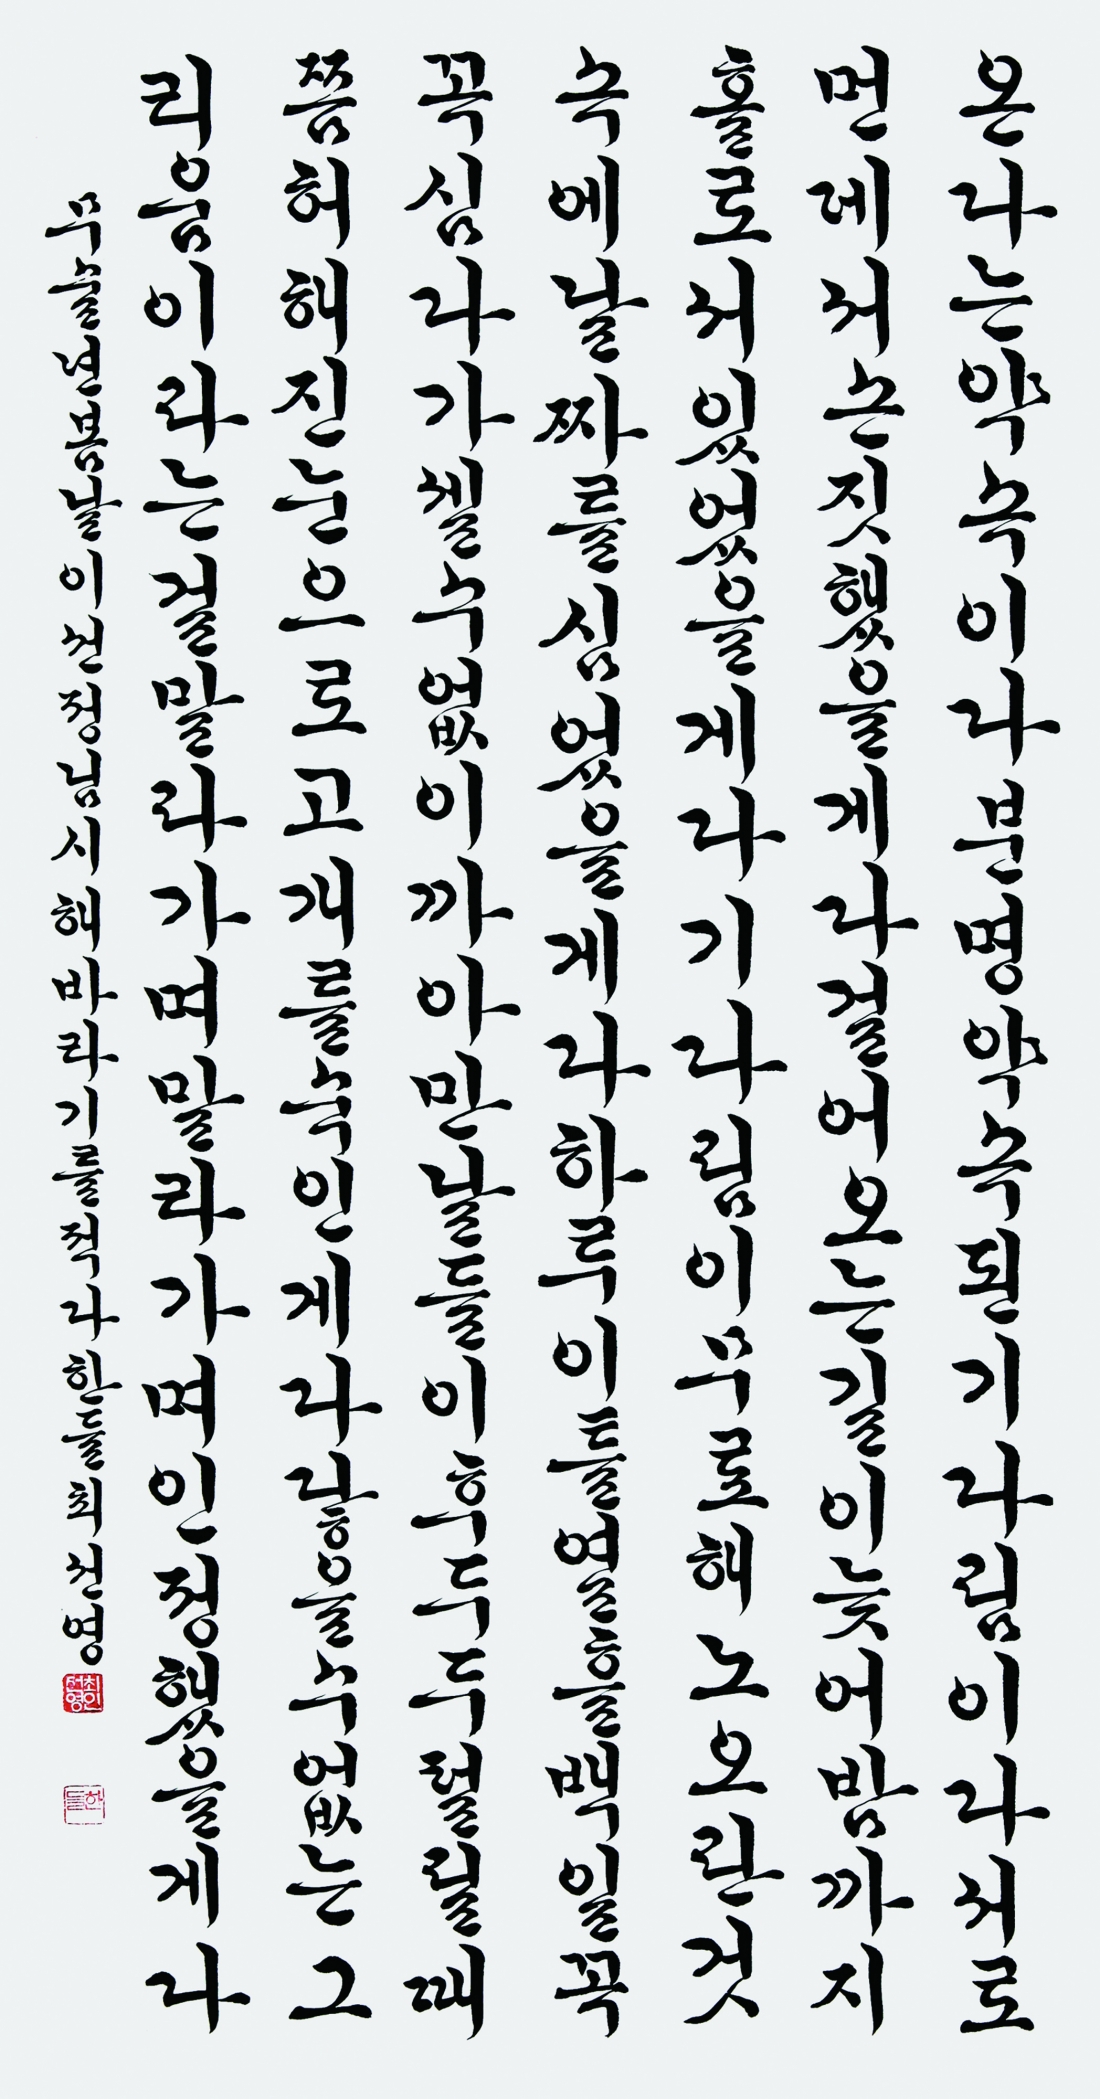 온다는약속이다분명약속된기다림이다서로
먼데서손짓했을게다걸어오는길이늦어밤까지
홀로서있었을게다기다림이무료해노오란것
속에날짜를심었을게다하루이틀열흘백일꼭
꼭심다가셀수없이까아만날들이후두두털릴때
쯤허해진눈으로고개를숙인게다닿을수없는그
리움이라는걸말라가며말라가며인정했을게다
무술년봄날이선정님시해바라기를적다한들최선영
최인선영
한들